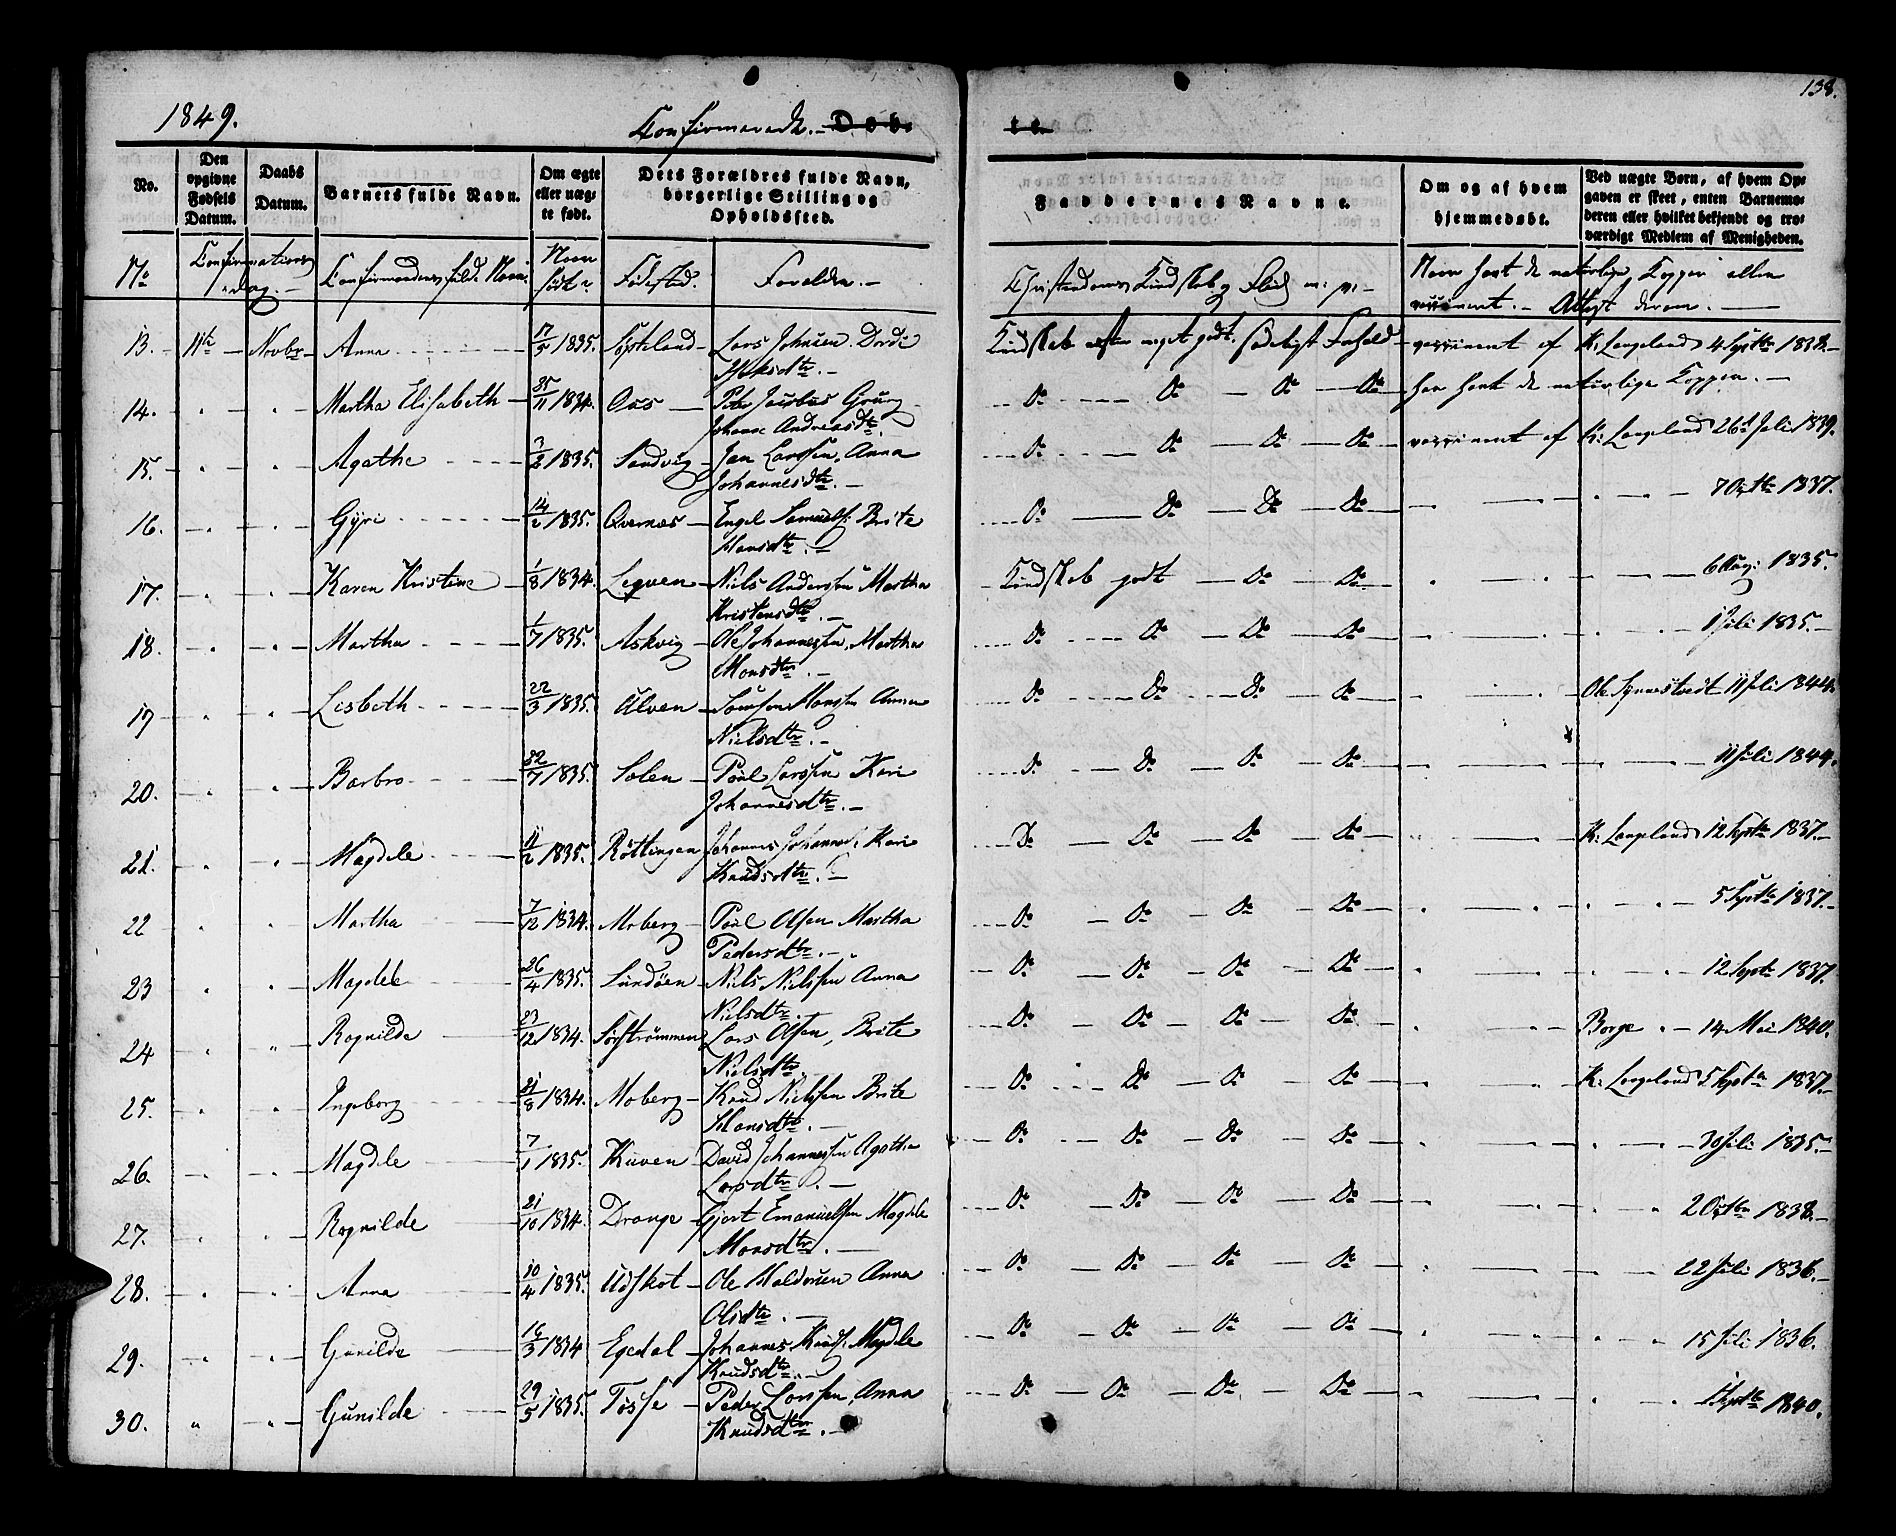 1849.
Confirmerede. — Døb-
te.
138.
No.
Den opgivne Fødsels Datum.
Daabs Datum.
Barnets fulde Navn.
Om ægte eller uægte født.
Dets Forældres fulde Navn, borgerlige Stilling og Opholdssted.
Faddernes Navne.
Om og af hvem hjemmedøbt.
Ved uægte Børn, af hvem Opgaven er skeet, enten Barnemoderen eller hvilket bekjendt og troværdige Medlem af Menigheden.
No Confirmations dag. — Confirmandens fulde Navn. Naar født? Fødested. Forældre. — Christendoms Kundskab og Flid m: v: — Naar havt de naturlige Kopper eller vaccineret. — Attest derom. —
13. 11te Novbr Anna 17/5 1835. Lars Johnsen Dordi — Kundskab meget godt. sædeligt Forhold — vaccineret af K: Langeland 4 Septbr 1838.
14. Martha Elisabeth 25/11 1834. Oos Peder Jacobus Grung Johanne Andreasdtr. Do Do Do Do har havt de naturlige Kopper. —
15. Agathe 3/2 1835. Sandvig Jan Larssen, Anna Johannesdtr. — Do Do Do Do vaccineret af K: Langeland 26d Juli 1839.
16. Gÿri 14/2 1835. Qvernæs Engel Samuels. Brite Hansdtr. — Do Do Do Do 7 Octbr 1837.
17. Karen Kristine 1/8 1834. Lepven Niels Anderssen Martha Kristensdtr. — Kundskab godt Do Do 6 Aug: 1835.
18. Martha 1/7 1835. Askvig Ole Johannessen, Martha Monsdtr. — Do Do Do Do 1 Juli 1835.
19 Lisbeth 22/3 1835. Ulven Monssen Anna Nielsdtr. — Do Do Do Do Ole Synnestvedt 11 Juli 1844.
20. Barbro 22/7 1835. Solen Poul Larssen Kari Johannesdtr. — Do Do Do Do 11 Juli 1844.
21. Magdele 11/2 1835. Røttingen Johannes Johannes. Kari Knudsdtr. — Do Do Do Do K: Langeland 12 Septbr 1837.
22 Martha 7/12 1834. Moberg Poul Olsen Martha Pedersdtr. — Do Do Do Do 5 Septbr 1837.
23 Magdele 26/4 1835. Lundøen Niels Nielssen Anna Nielsdtr. Do Do Do Do 12 Septbr 1837.
24 Ragnilde 23/12 1834. Sørstrømmen Lars Olsen, Brite Nielsdtr. Do Do Do Do Borge 14 Mai 1840.
25. Ingeborg 21/8 1834. Moberg Knud Nielssen Brite Hansdtr. — Do Do Do Do K: Langeland 5 Septbr 1837.
26. Magdele 7/1 1835. Kuven David Johannessen Agatha Larsdtr. — Do Do Do Do 30 Juli 1835.
27. Ragnilde 21/10 1834. Drange Gjert Emanuelsen Magdele Monsdtr. — Do Do Do Do 2 Octbr 1838.
28. Anna 10/4 1835. Udskot Ole Haldorsen Anna Olsdtr. — Do Do Do Do 22 Juli 1836.
29. Gunilde 16/3 1834 Egedal Johannes Knuds. Magdele Knudsdtr. — Do Do Do Do 15 Juli 1836.
30. Gunilde 29/5 1835. Tøsse Peder Larssen, Anna Knudsdtr. — Do Do Do Do 1 Septbr 1840.